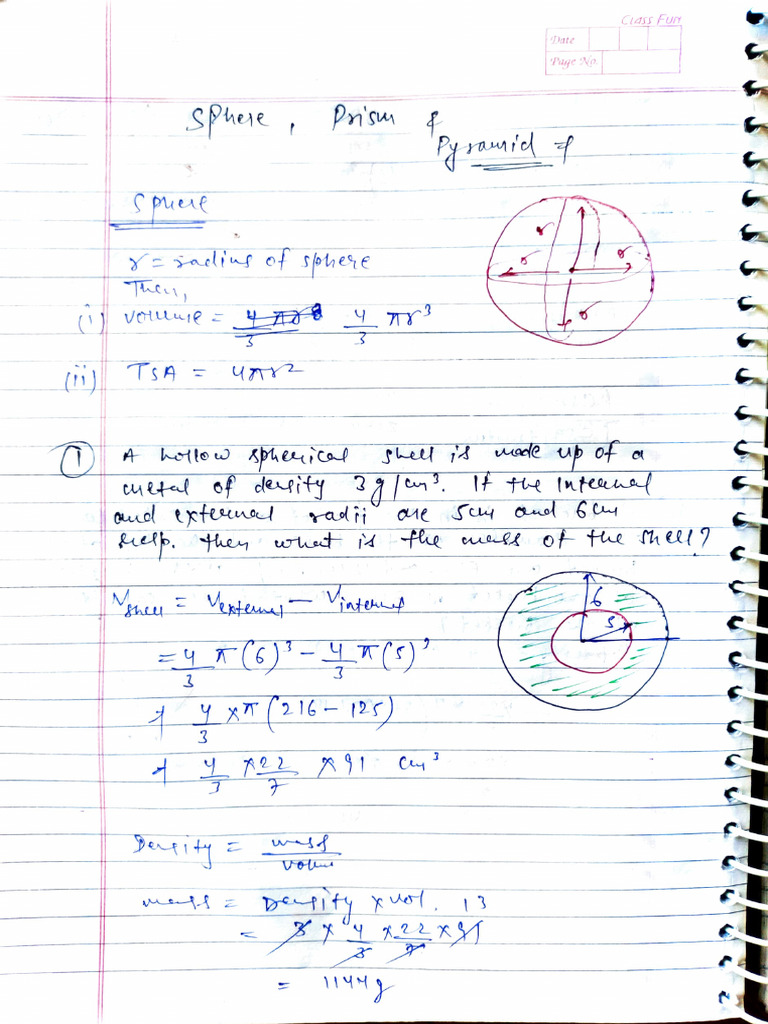 Class Fun
Date
Page No.
Sphere, Prism &
Pyramid
Sphere
r = radius of sphere
Then,
(i) volume = 4/3 πr³ 4/3 πr³
(ii) TSA = 4πr²
r r r r
① A hollow spherical shell is made up of a
metal of density 3 g/cm³. If the internal
and external radii are 5cm and 6cm
resp. then what is the mass of the shell?
V shell = V external − V internal
= 4/3 π(6)³ − 4/3 π(5)³
4/3 × π (216 − 125)
4/3 × 22/7 × 91 cm³
6
5
Density = mass/volum
mass = Density × vol. 13
= 3 × 4/3 × 22/7 × 91
= 1144g